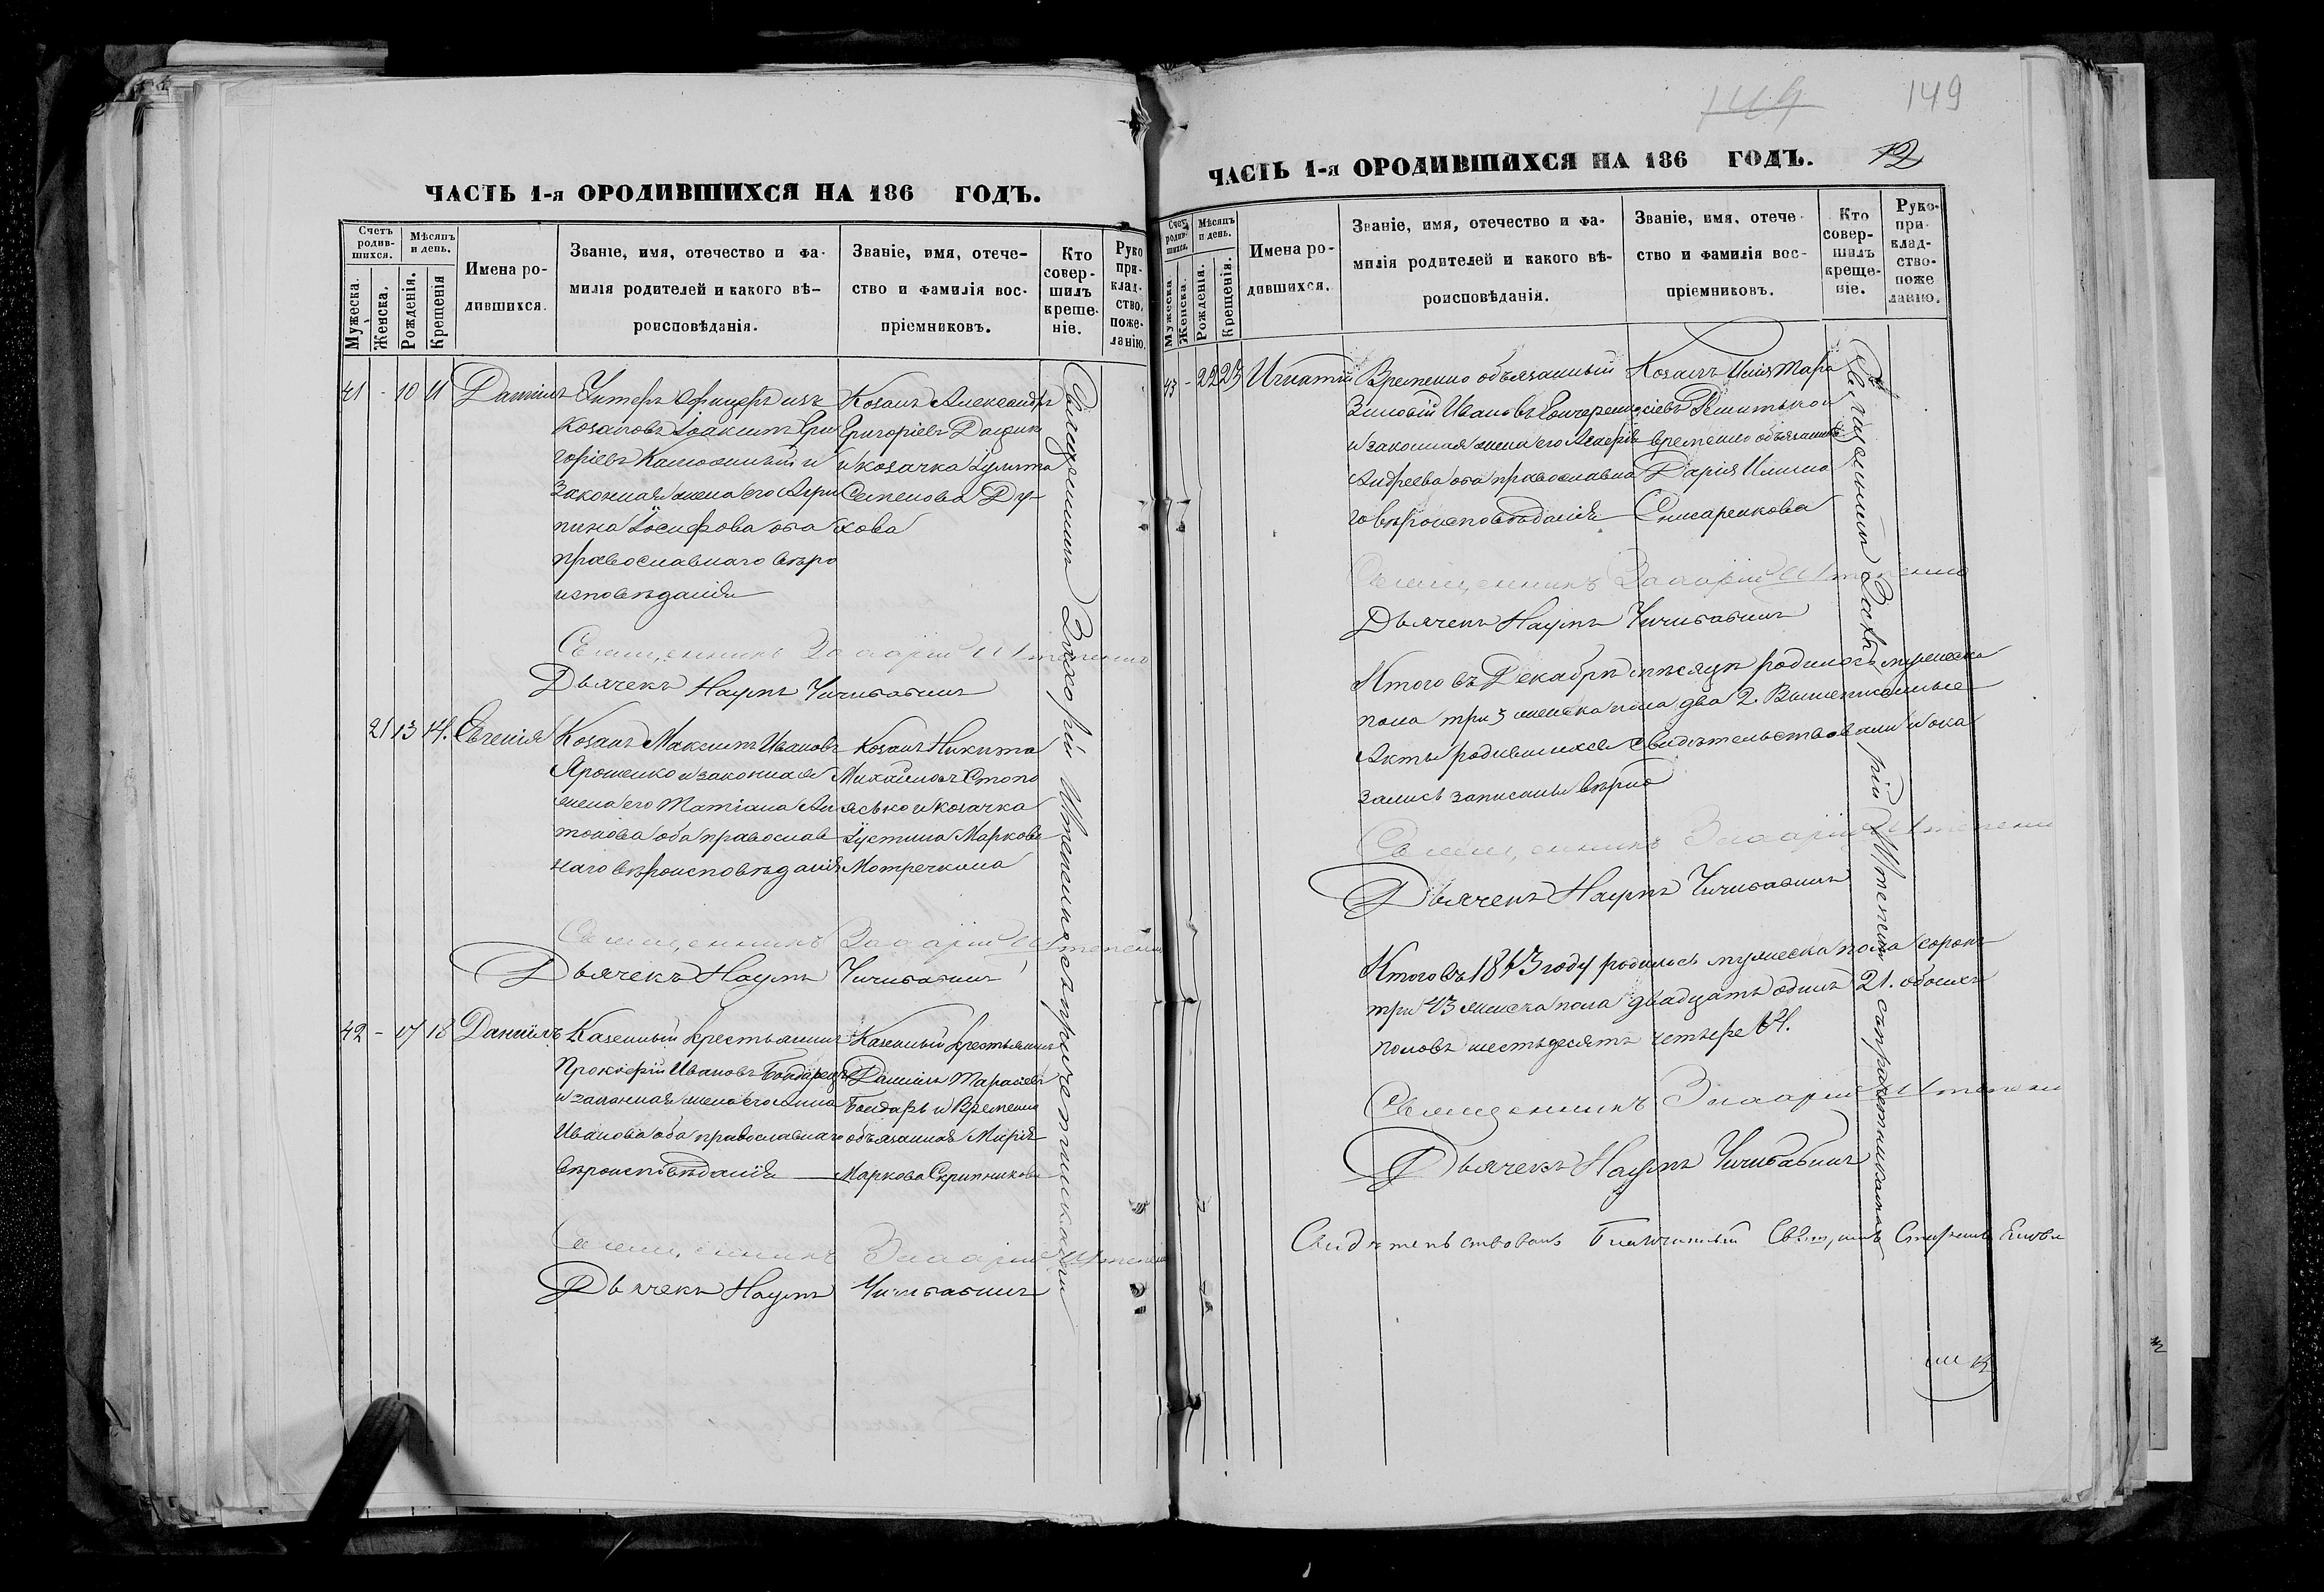 ЧАСТЬ 1-я ОРОДИВШИХСЯ НА 186 ГОДЪ.
Счетъ родив-шихся.
Мѣсяцъ и день.
Мужеска.
Женска.
Рожденія.
Крещенія
Имена ро-
дившихся.
Званіе, имя, отчество и фа-
милія родителей и какого вѣ-
роисповѣданія.
Званіе, имя, отече-
ство и фамилія вос-
пріемниковъ.
Кто совер-шилъ креще-ніе.
Руко при-клад-ство, поже-ланію.
41 - 10 11 Даніилъ
Унтеръ Офицеръ изъ
козаковъ Іоакимъ Гри
горіевъ и
законная жена его Агри
пина Іосифова оба
православнаго вѣро
исповѣданія
Козакъ Александръ
Григоріевъ
и козачка Іулита
Семенова Ду-
хова
Священникъ Захарій Штепенко
Дьячекъ Наумъ Чичибабинъ
21 13 14. Евгенія
Козакъ Максимъ Ивановъ
Ярошенко и законная
жена его Татіана Ан
тонова оба православ
наго вѣроисповѣданія
Козакъ Никита
Михайловъ Стопо
ясько и козачка
Іустина Маркова
Мотречкина
Священникъ Захарій Штепенко
Дьячекъ Наумъ Чичибабинъ
42 - 17 18 Даніилъ
Казенный крестьянинъ
Прокофій Ивановъ Бондарець
и законная жена его Анна
Иванова оба православнаго
вѣроисповѣданія
Казенный крестьянинъ
Даніилъ Тарасіевъ
Бондарь и Временно
обязанная Марія
Маркова Скрипникова
Священникъ Захарій Штепенко
Дьячекъ Наумъ Чичибабинъ
Священникъ Захарій Штепенко съ причетниками
149
149
12
ЧАСТЬ 1-я ОРОДИВШИХСЯ НА 186 ГОДЪ.
Счетъ родив-шихся.
Мѣсяцъ и день.
Мужеска.
Женска.
Рожденія.
Крещенія.
Имена ро-
дившихся.
Званіе, имя, отечество и фа-
милія родителей и какого вѣ-
роисповѣданія.
Званіе, имя, отече-
ство и фамилія вос-
пріемниковъ.
Кто совер-шилъ креще-ніе.
Руко-при-клад-ство-поже ланію.
43 - 22 23 Игнатій
Временно обязанный
Зиновій Ивановъ
и законная жена его
Андреева оба православна
го вѣроисповѣданія
Козакъ Илія Тара
сіевъ
временно обязанная
Дарія Илина
Снисаренкова
Священникъ Захарій Штепенко
Дьячекъ Наумъ Чичибабинъ
Итого въ Декабрѣ мѣсяцѣ родилось мужеска
пола три 3 женска пола два 2. Вышеписанные
Акты родившихся свидѣтельствовали и ока
зались записаны вѣрно
Священникъ Захарій Штепенко
Дьячекъ Наумъ Чичибабинъ
Итого въ 1873 году родилось мужеска пола сорокъ
три 43 женска пола двадцать одинъ 21. обоихъ
половъ шестьдесятъ четыре 64.
Священникъ Захарій Штепенко
Дьячекъ Наумъ Чичибабинъ
Свидѣтельствовалъ Благочинный
Священникъ Захарій Штепенко съ причетниками